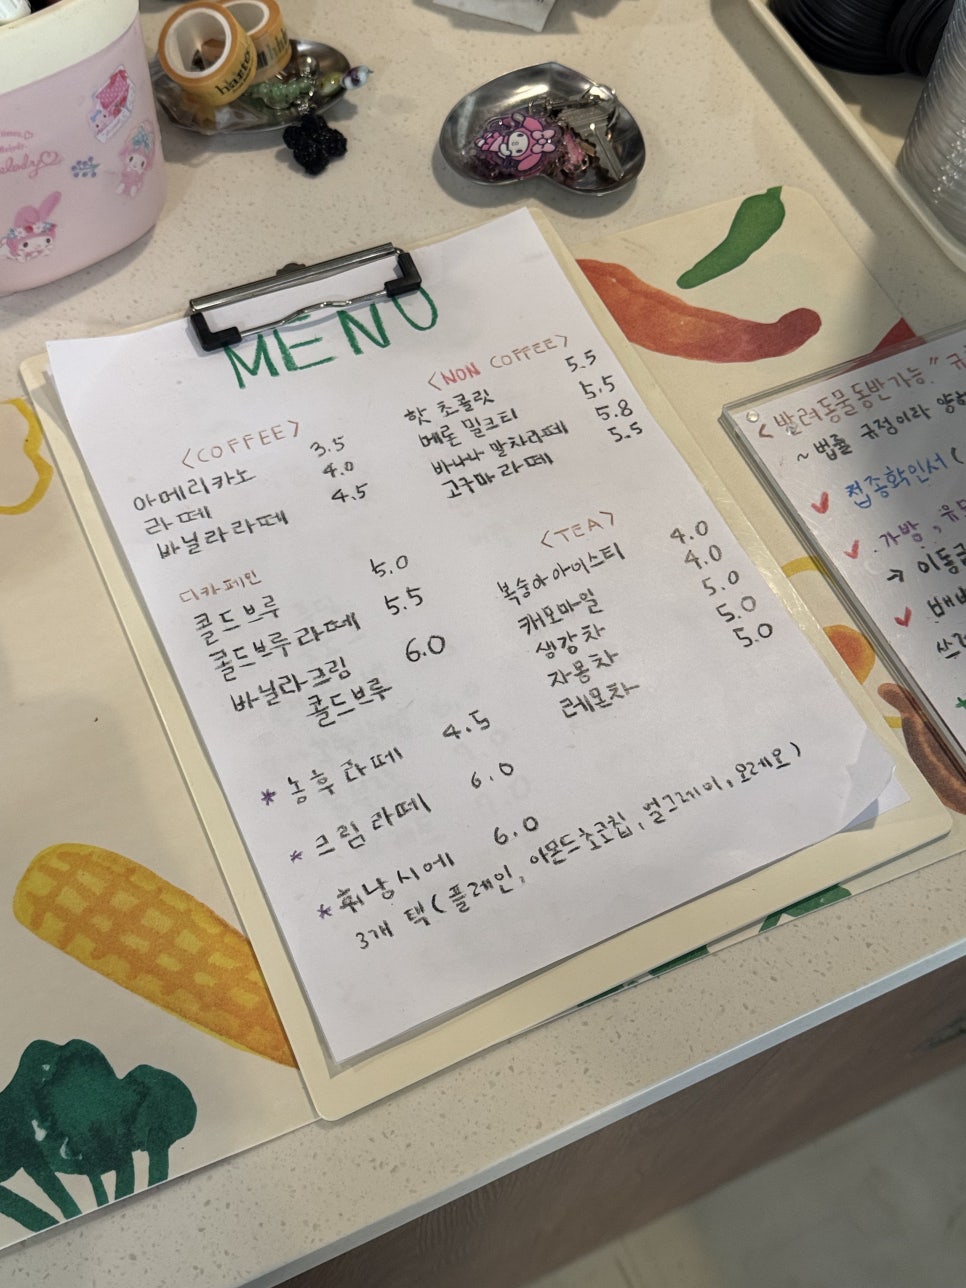 MENU
<COFFEE>
아메리카노 3.5
라떼 4.0
바닐라라떼 4.5
디카페인
콜드브루 5.0
콜드브루라떼 5.5
바닐라크림 6.0
콜드브루
<NON COFFEE>
핫초콜릿 5.5
메론밀크티 5.5
바나나말차라떼 5.8
고구마라떼 5.5
<TEA>
복숭아아이스티 4.0
캐모마일 4.0
생강차 5.0
자몽차 5.0
레몬차 5.0
* 농후라떼 4.5
* 크림라떼 6.0
* 휘낭시에 6.0
3개 택(플레인, 아몬드초코칩, 얼그레이, 오레오)
<반려동물동반가능"
~법률 규정이라
접종확인서(
가방,
→ 이동
harto